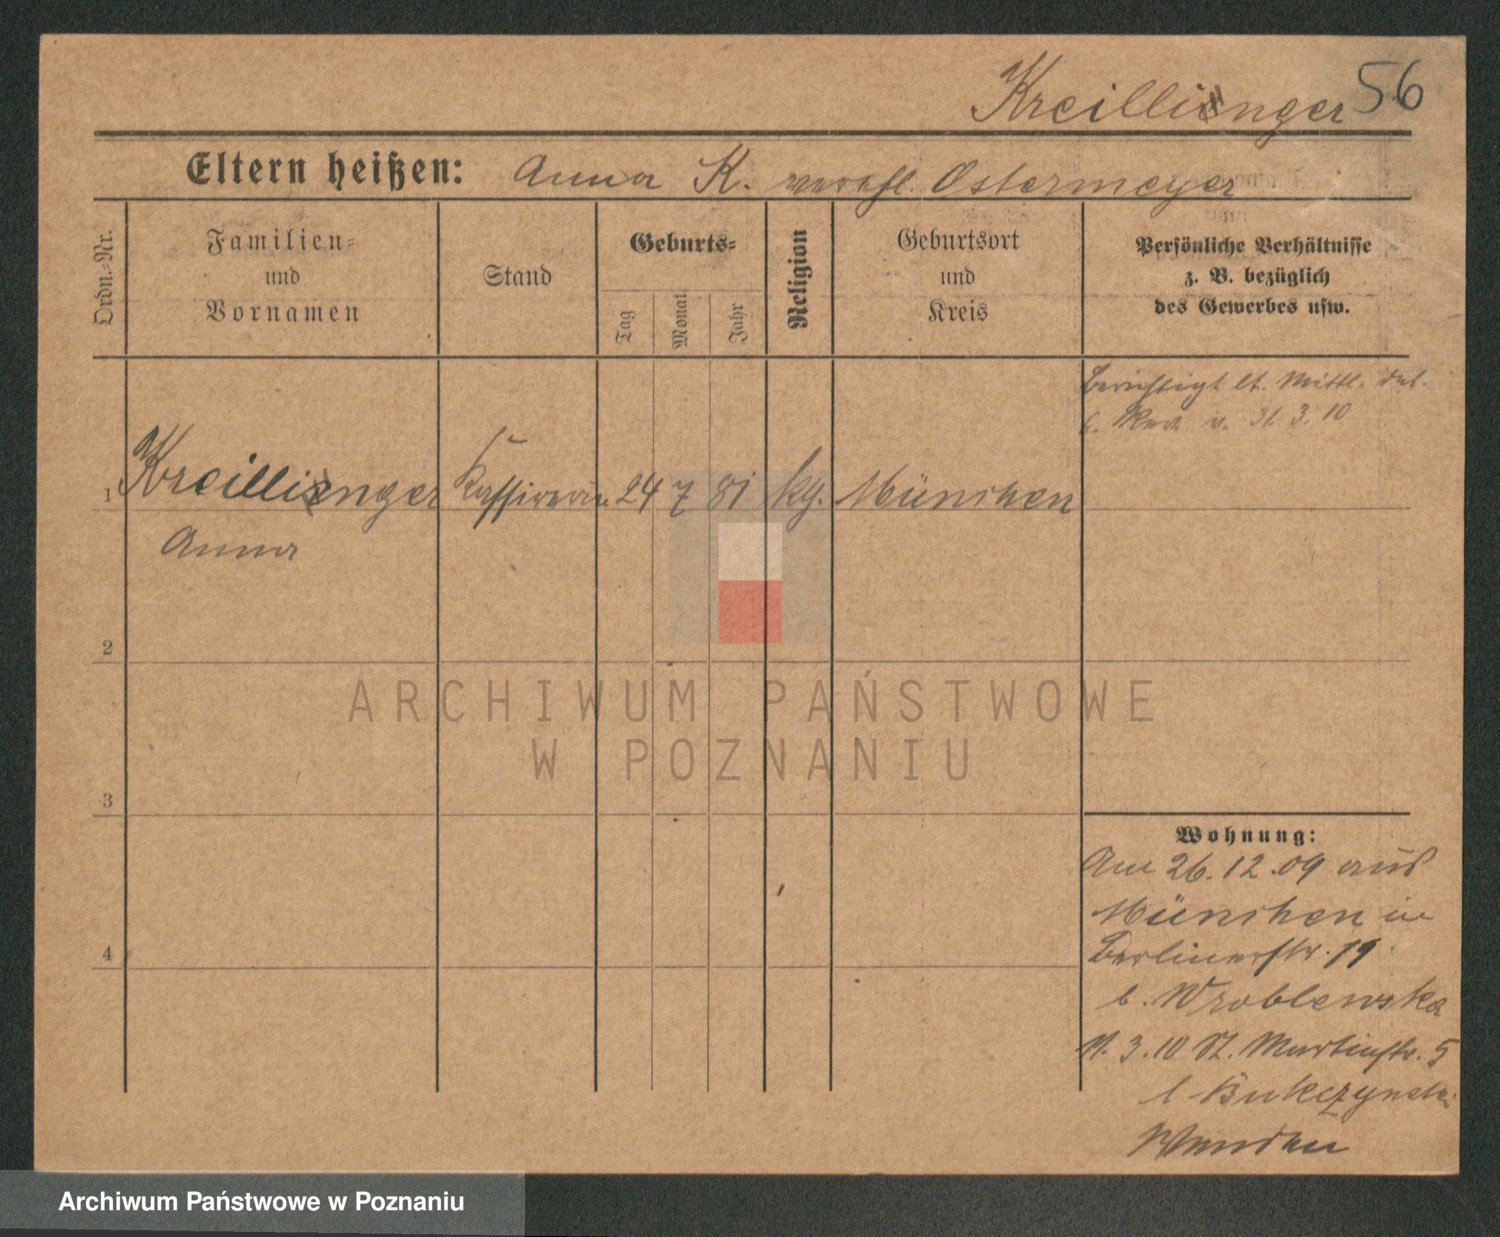 Kreillinger 56
Eltern heißen: Anna K. verehl. Ostermeyer
Ordn.-Nr.
Familien-
und
Vornamen
Stand
Geburts-
Tag
Monat
Jahr
Religion
Geburtsort
und
Kreis
Persönliche Verhältnisse
z. B. bezüglich
des Gewerbes usw.
Berichtigt lt. Mittl. des
v. 31. 3. 10
1 Kreillinger Kassirerin 24 7 81 kth. München
Anna
2
3
4
ARCHIWUM PAŃSTWOWE
W POZNANIU
Wohnung:
Am 26.12.09 aus
München in
Berlinerstr. 19
b. Wroblewska
3.10 St. Martinstr. 5
b Bukczynski
Archiwum Państwowe w Poznaniu